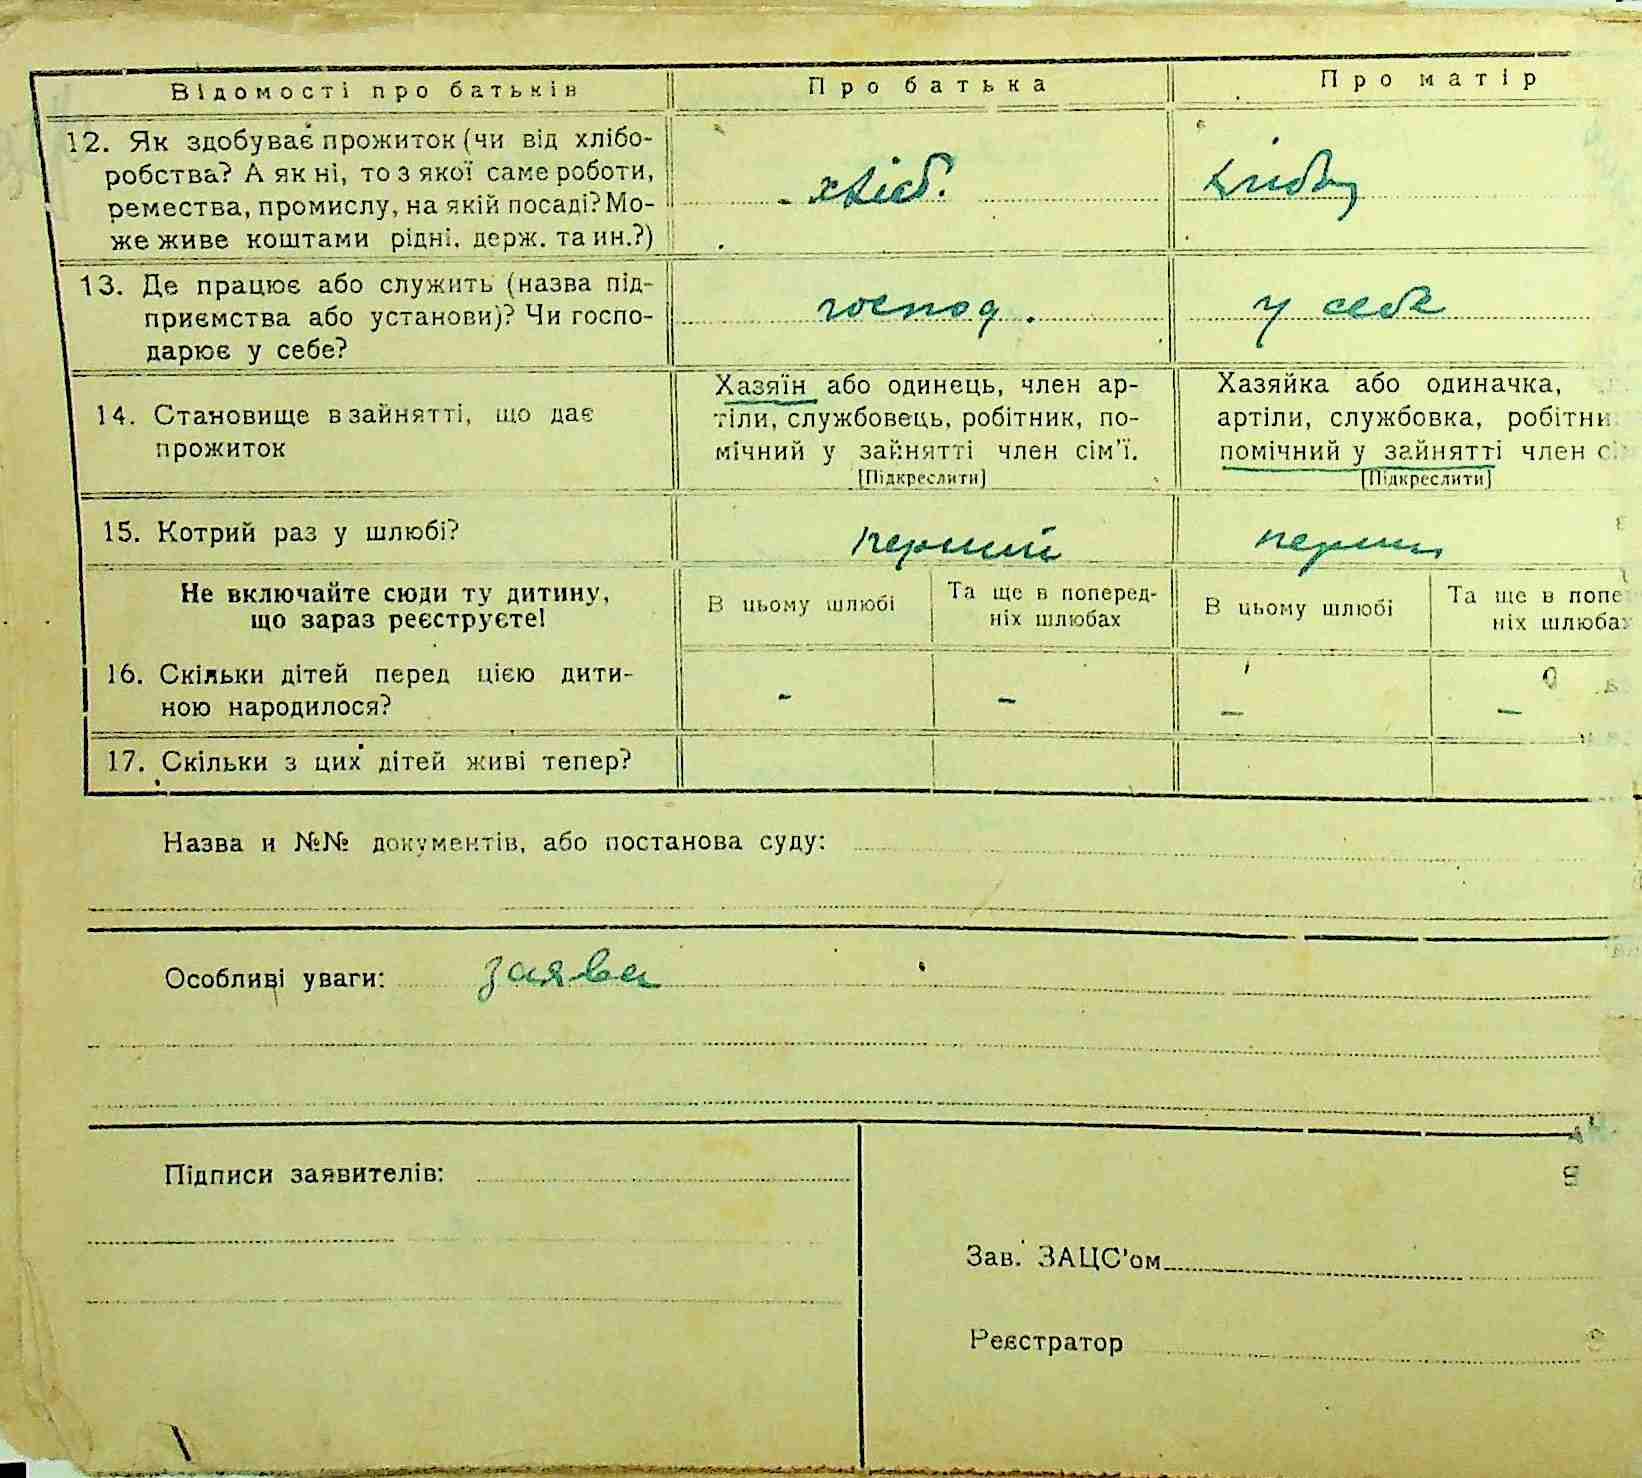 Відомості про батьків Про батька Про матір
12. Як здобуває прожиток (чи від хлібо-
робства? А як ні, то з якої саме роботи,
ремества, промислу, на якій посаді? Мо-
же живе коштами рідні. держ. та ин.?)
хліб.
13. Де працює або служить (назва під-
приємства або установи)? Чи госпо-
дарює у себе?
господ. у себе
14. Становище в зайнятті, що дає
прожиток
Хазяїн або одинець, член ар-
тіли, службовець, робітник, по-
мічний у зайнятті член сім'ї.
[Підкреслити]
Хазяйка або одиначка,
артіли, службовка, робітни
помічний у зайнятті член сі
[Підкреслити]
15. Котрий раз у шлюбі? перший перший
Не включайте сюди ту дитину,
що зараз реєструєте!
В цьому шлюбі
Та ще в поперед-
ніх шлюбах
В цьому шлюбі
Та ще в попе
ніх шлюбах
16. Скільки дітей перед цією дити-
ною народилося?
- - - -
17. Скільки з цих дітей живі тепер?
Назва и №№ документів, або постанова суду:
Особливі уваги: заява
Підписи заявителів:
Зав. ЗАЦС'ом
Реєстратор